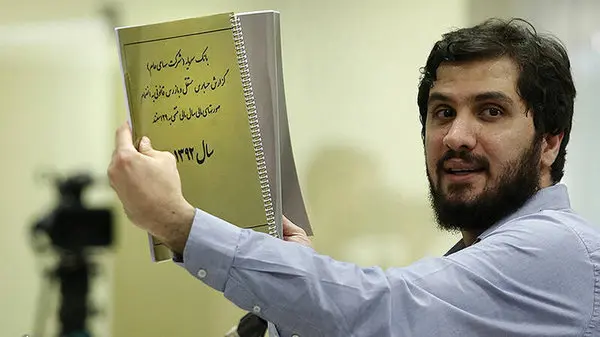 بانک سرمایه (شرکت سهامی عام)
گزارش حسابرس مستقل و بازرس قانونی به انضمام
صورتهای مالی سال مالی منتهی به ۲۹ اسفند
سال ۱۳۹۲